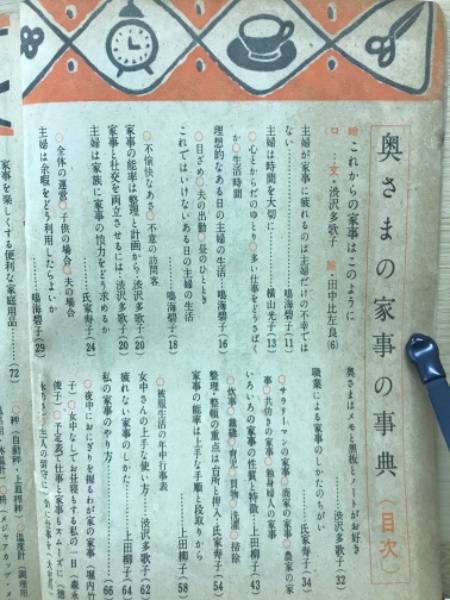 奥さまの家事の事典（目次）
絵 これからの家事はこのように
口 …文・渋沢多歌子 絵・田中比左良(6)
主婦が家事に疲れるのは主婦だけの不幸では
ない……鳴海碧子(11)
主婦は時間を大切に……横山光子(13)
○心とからだのゆとり○多い仕事をどうさばく
か○生活時間
理想的なある日の主婦の生活…鳴海碧子(16)
○目ざめ○夫の出勤○昼のひととき
これではいけないある日の主婦の生活
……鳴海碧子(18)
○不愉快なあさ○不意の訪問客
家事の能率は整理と計画から・渋沢多歌子(20)
家事と社交を両立させるには・渋沢多歌子(20)
主婦は家族に家事の協力をどう求めるか
……氏家寿子(24)
○全体の運営○子供の場合○夫の場合
主婦は余暇をどう利用したらよいか
……鳴海碧子(29)
奥さまはメモと黒板とノートがお好き
……渋沢多歌子(32)
職業による家事のしかたのちがい
……氏家寿子(34)
○サラリーマンの家事○商家の家事○農家の家
事○共仕の家事○独身婦人の家事
いろいろの家事の性質と特徴…上田柳子(43)
○炊事○裁縫○育児○買物○洗濯○掃除
整理・整頓の重点は台所と押入・氏家寿子(54)
家事の能率は上手な手順と段取りから
……上田柳子(58)
○被服生活の年中行事表
女中さんの上手な使い方……渋沢多歌子(62)
疲れない家事のしかた……上田柳子(64)
私の家事のやり方……(66)
○夜中におにぎりを握るわが家の家事（堀内竹
子）○女中なしでお昼寝もする私の一日（森永
俊子）○予定表で仕事と家事もスムーズに（徳
家事を楽しくする便利な家庭用品……(72)